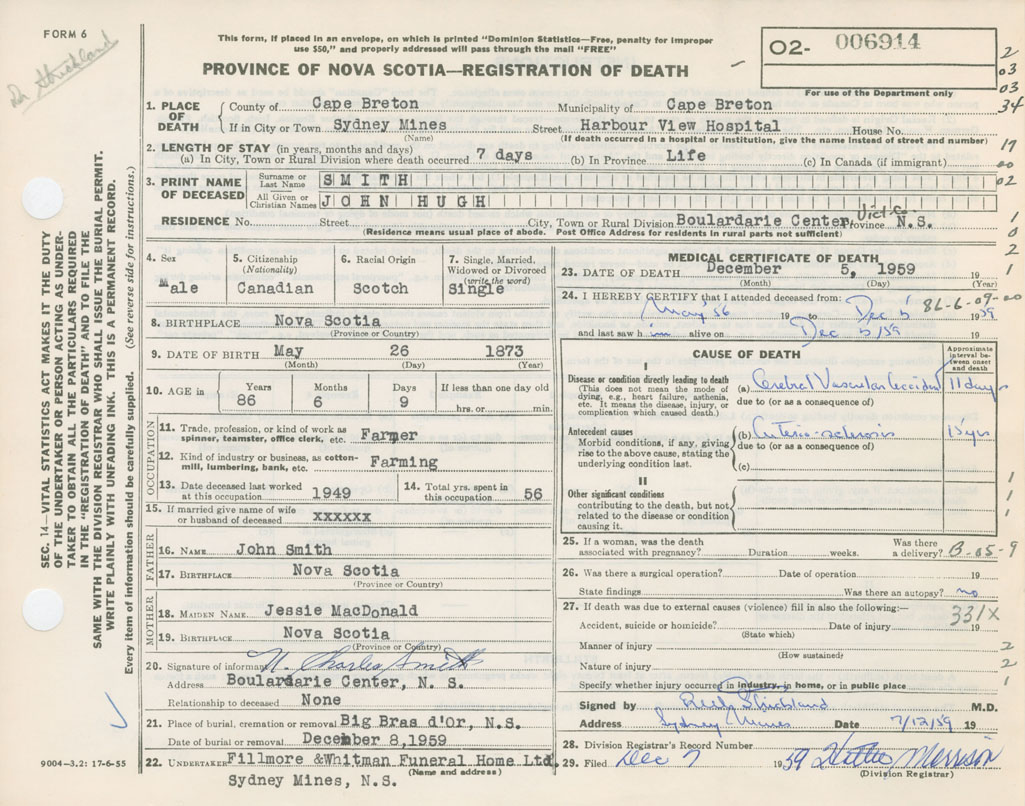 FORM 6
This form, if placed in an envelope, on which is printed "Dominion Statistics—Free, penalty for improper
use $50," and properly addressed will pass through the mail "FREE"
PROVINCE OF NOVA SCOTIA—REGISTRATION OF DEATH
02- 006914
For use of the Department only
Dr Strickland
2
03
03
34
17
00
02
1
0
2
1
1. PLACE OF DEATH
County of Cape Breton Municipality of Cape Breton
If in City or Town Sydney Mines Street Harbour View Hospital House No.
(Name) (If death occurred in a hospital or institution, give the name instead of street and number)
2. LENGTH OF STAY (in years, months and days)
(a) In City, Town or Rural Division where death occurred 7 days (b) In Province Life (c) In Canada (if immigrant)
3. PRINT NAME OF DECEASED
Surname or Last Name SMITH
All Given or Christian Names JOHN HUGH
RESIDENCE No. Street City, Town or Rural Division Boulardarie Center, Vict Co Province N.S.
(Residence means usual place of abode. Post Office Address for residents in rural parts not sufficient)
4. Sex Male
5. Citizenship (Nationality) Canadian
6. Racial Origin Scotch
7. Single, Married, Widowed or Divorced (write the word) Single
8. BIRTHPLACE Nova Scotia
(Province or Country)
9. DATE OF BIRTH May 26 1873
(Month) (Day) (Year)
10. AGE in Years 86 Months 6 Days 9 If less than one day old hrs. or min.
OCCUPATION
11. Trade, profession, or kind of work as spinner, teamster, office clerk, etc. Farmer
12. Kind of industry or business, as cotton-mill, lumbering, bank, etc. Farming
13. Date deceased last worked at this occupation 1949
14. Total yrs. spent in this occupation 56
15. If married give name of wife or husband of deceased xxxxxx
FATHER
16. NAME John Smith
17. BIRTHPLACE Nova Scotia
(Province or Country)
MOTHER
18. MAIDEN NAME Jessie MacDonald
19. BIRTHPLACE Nova Scotia
(Province or Country)
20. Signature of informant Charles Smith
Address Boulardarie Center, N. S.
Relationship to deceased None
21. Place of burial, cremation or removal Big Bras d'Or, N.S.
Date of burial or removal December 8,1959
22. UNDERTAKER Fillmore &Whitman Funeral Home Ltd.
(Name and address)
Sydney Mines, N.S.
MEDICAL CERTIFICATE OF DEATH
23. DATE OF DEATH December 5, 1959
19
(Month) (Day) (Year)
24. I HEREBY CERTIFY that I attended deceased from: 86-6-09-00
May '56 19 to Dec 5 19 59
and last saw him alive on Dec 5/59 19
CAUSE OF DEATH
Approximate interval between onset and death
I
Disease or condition directly leading to death
(This does not mean the mode of dying, e.g., heart failure, asthenia, etc. It means the disease, injury, or complication which caused death.)
(a) Cerebral Vascular Accident 11 days
due to (or as a consequence of)
Antecedent causes
Morbid conditions, if any, giving rise to the above cause, stating the underlying condition last.
(b) Arterio-sclerosis 15 yrs
due to (or as a consequence of)
(c)
II
Other significant conditions
contributing to the death, but not related to the disease or condition causing it.
1
1
1
25. If a woman, was the death associated with pregnancy? Duration weeks. Was there a delivery? B-05-9
26. Was there a surgical operation? Date of operation 19
State findings Was there an autopsy? no
27. If death was due to external causes (violence) fill in also the following:— 331X
Accident, suicide or homicide? Date of injury 19
(State which)
Manner of injury 2
(How sustained)
Nature of injury 2
Specify whether injury occurred in industry, in home, or in public place 1
Signed by Strickland M.D.
Address Sydney Mines Date 7/12/59 19
28. Division Registrar's Record Number
29. Filed Dec 7 1959 Hattie Morrison
(Division Registrar)
SEC. 14—VITAL STATISTICS ACT MAKES IT THE DUTY
OF THE UNDERTAKER OR PERSON ACTING AS UNDER-
TAKER TO OBTAIN ALL THE PARTICULARS REQUIRED
IN THE "REGISTRATION OF DEATH" AND TO FILE THE
SAME WITH THE DIVISION REGISTRAR WHO SHALL ISSUE THE BURIAL PERMIT.
WRITE PLAINLY WITH UNFADING INK. THIS IS A PERMANENT RECORD.
Every item of information should be carefully supplied. (See reverse side for instructions.)
9004-3.2: 17-6-55